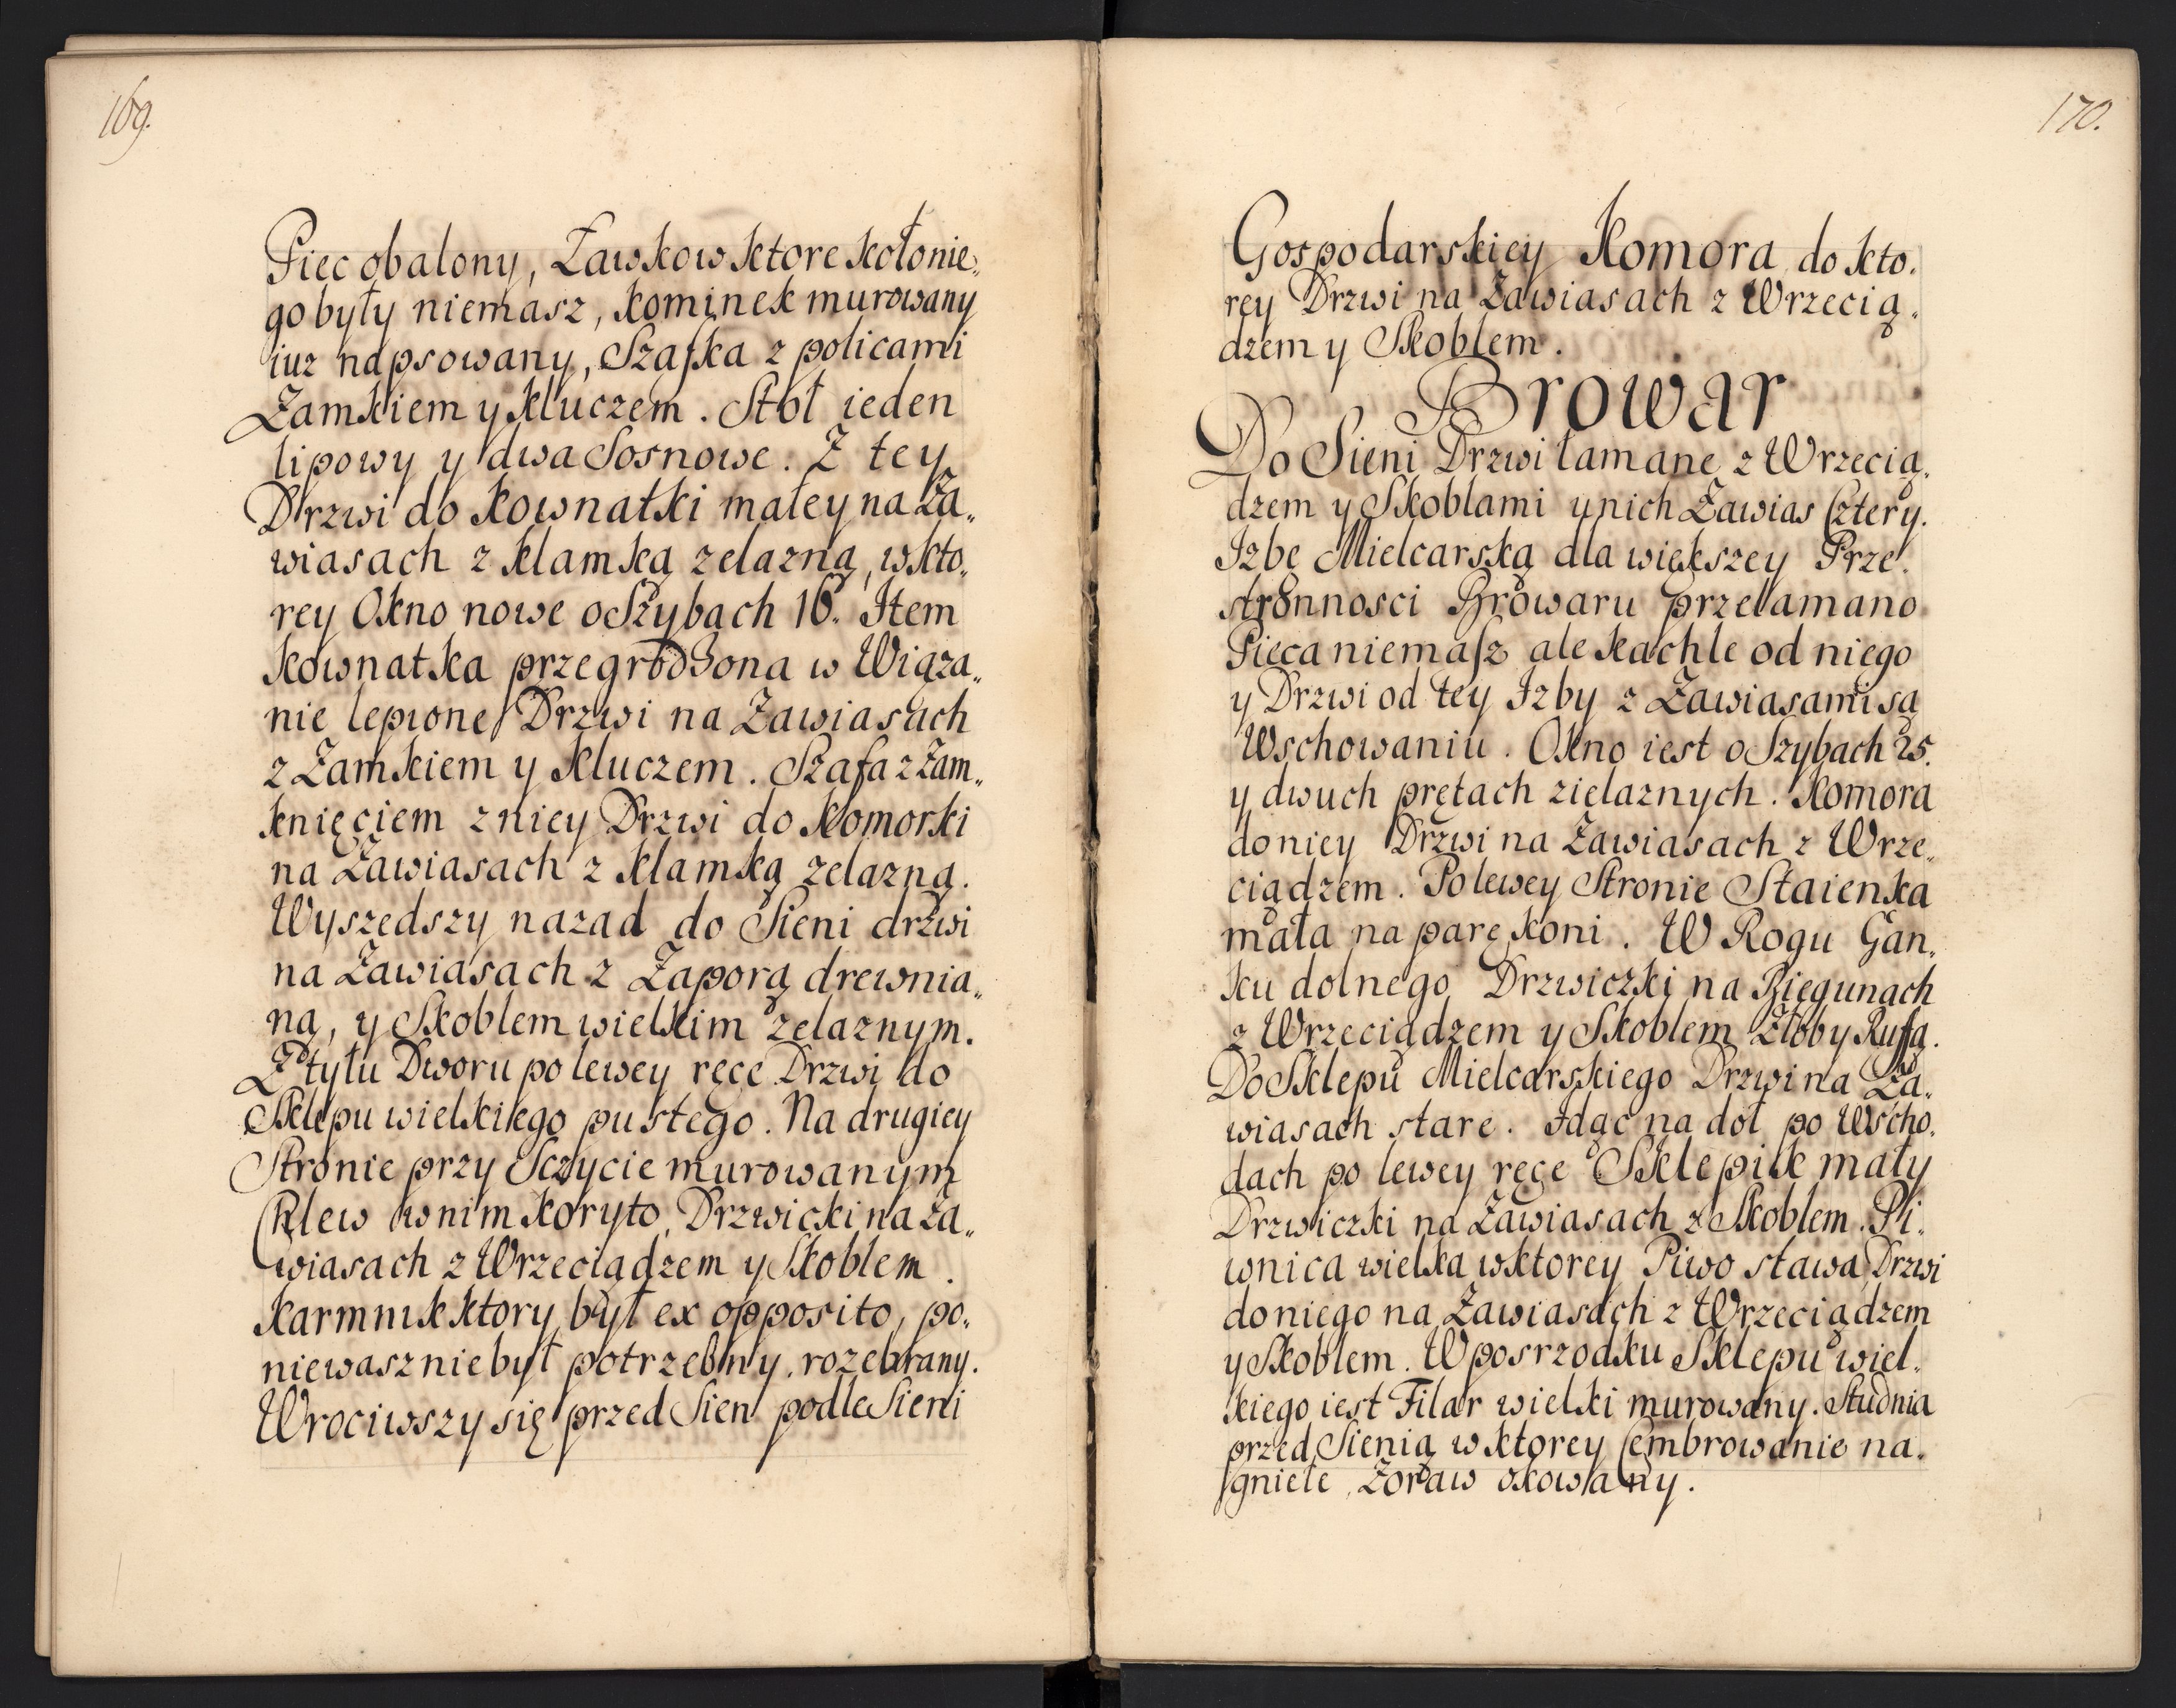 169.
Piec obalony, Ławkow ktore koło nie„
go były niemasz, kominek murowany
iuz napsowany, Szafka z policami
Zamkiem y kluczem. Stoł ieden
lipowy y dwa Sosnowe. Z tey
Drzwi do kownatki małey na Za„
wiasach z klamką zelazną, w kto„
rey Okno nowe o Szybach 16. Item
kownatka przegrodzona w Wiąza„
nie lepione Drzwi na Zawiasach
z Zamkiem y kluczem. Szafa z Zam„
knięciem z niey Drzwi do komorki
na Zawiasach z klamką zelazną.
Wyszedszy nazad do Sieni drzwi
na Zawiasach z Zaporą drewnia„
ną, y Skoblem wielkim zelaznym.
Z tyłu Dworu po lewey ręce Drzwi do
Sklepu wielkiego pustego. Na drugiey
Stronie przy Sczycie murowanym
Chlew w nim koryto, Drzwicki na Za„
wiasach z Wrzeciądzem y Skoblem.
karmnik ktory był ex opposito, po„
niewasz nie był potrzebny, rozebrany.
Wrociwszy się przed Sien podle Sieni
170.
Gospodarskiey Komora do kto„
rey Drzwi na Zawiasach z Wrzecią„
dzem y Skoblem.
Browar
Do Sieni Drzwi łamane z Wrzecią„
dzem y Skoblami u nich Zawias Cztery.
Izbę Mielcarską dla większey Prze„
stronnosci Browaru przełamano
Pieca niemasz ale kachle od niego
y Drzwi od tey Izby z Zawiasami są
W schowaniu. Okno iest o Szybach 25.
y dwuch prętach zielaznych. Komora
do niey Drzwi na Zawiasach z Wrze„
ciądzem. Po lewey Stronie Staienka
mała na parę koni. W Rogu Gan„
ku dolnego Drzwiczki na Biegunach
z Wrzeciądzem y Skoblem Złoby Ruffą.
Do Sklepu Mielcarskiego Drzwi na Za„
wiasach stare. Idąc na doł po Wscho„
dach po lewey ręce Sklepik mały
Drzwiczki na Zawiasach z Skoblem. Pi„
wnica wielka w ktorey Piwo stawa Drzwi
do niego na Zawiasach z Wrzeciądzem
y Skoblem. W posrzodku Sklepu wiel„
kiego iest Filar wielki murowany. Studnia
przed Sienią w ktorey Cembrowanie na„
gniełe, Zoraw okowany.